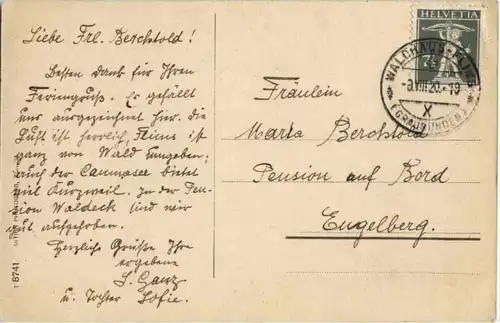 Liebe Frl. Berchtold!
Besten dank für Ihren
Feriengruß. Es gefällt
uns ausgezeichnet hier. die
Luft ist herrlich, Flims ist
ganz von Wald umgeben;
auch der Caumasee bietet
viel Kurzweil. In der Pen-
sion Waldeck sind wir
gut aufgehoben.
Herzliche Grüße Ihre
ergebene
S. Ganz
u. Tochter Sofie.
HELVETIA
7½
WALDHAUS-FLIMS
-9.VIII.20.-19
X
(GRAUBÜNDEN)
Fräulein
Maria Berchtold
Pension auf Bord
Engelberg.
T 8741